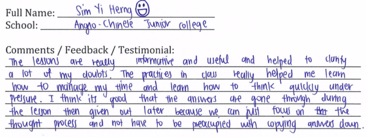 Full Name: Sim Yi Herng
School: Anglo-Chinese Junior College
Comments / Feedback / Testimonial:
The lessons are really informative and useful and helped to clarify
a lot of my doubts. The practices in class really helped me learn
how to manage my time and learn how to think quickly under
pressure. I think its good that the answers are gone through during
the lesson then given out later because we can full focus on the
thought process and not have to be preoccupied with copying answers down.